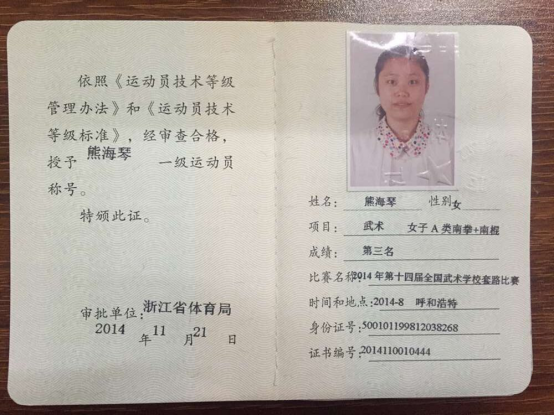 依照《运动员技术等级
管理办法》和《运动员技术
等级标准》，经审查合格，
授予 熊海琴 一级运动员
称号。
特颁此证。
审批单位：浙江省体育局
2014年11月21日
姓名：熊海琴 性别女
项目：武术 女子A类南拳+南棍
成绩：第三名
比赛名称：2014年第十四届全国武术学校套路比赛
时间和地点：2014-8 呼和浩特
身份证号：500101199812038268
证书编号：2014110010444